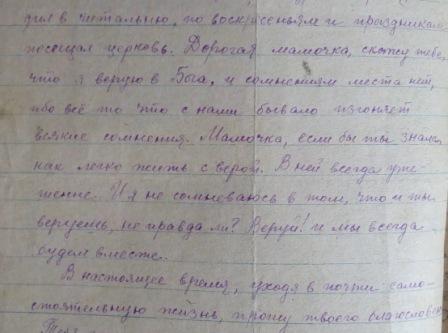 дил в читальню, по воскресеньям и праздникам
посещал церковь. Дорогая мамочка, скажу тебе,
что я верую в Бога, и сомнениям места нет,
ибо всё то что с нами бывало изгоняет
всякие сомнения. Мамочка, если бы ты знала,
как легко жить с верой. В ней всегда уте-
шение. И я не сомневаюсь в том, что и ты
веруешь, не правда ли? Веруй! и мы всегда
будем вместе.
В настоящее время, уходя в почти само-
стоятельную жизнь, прошу твоего благослове